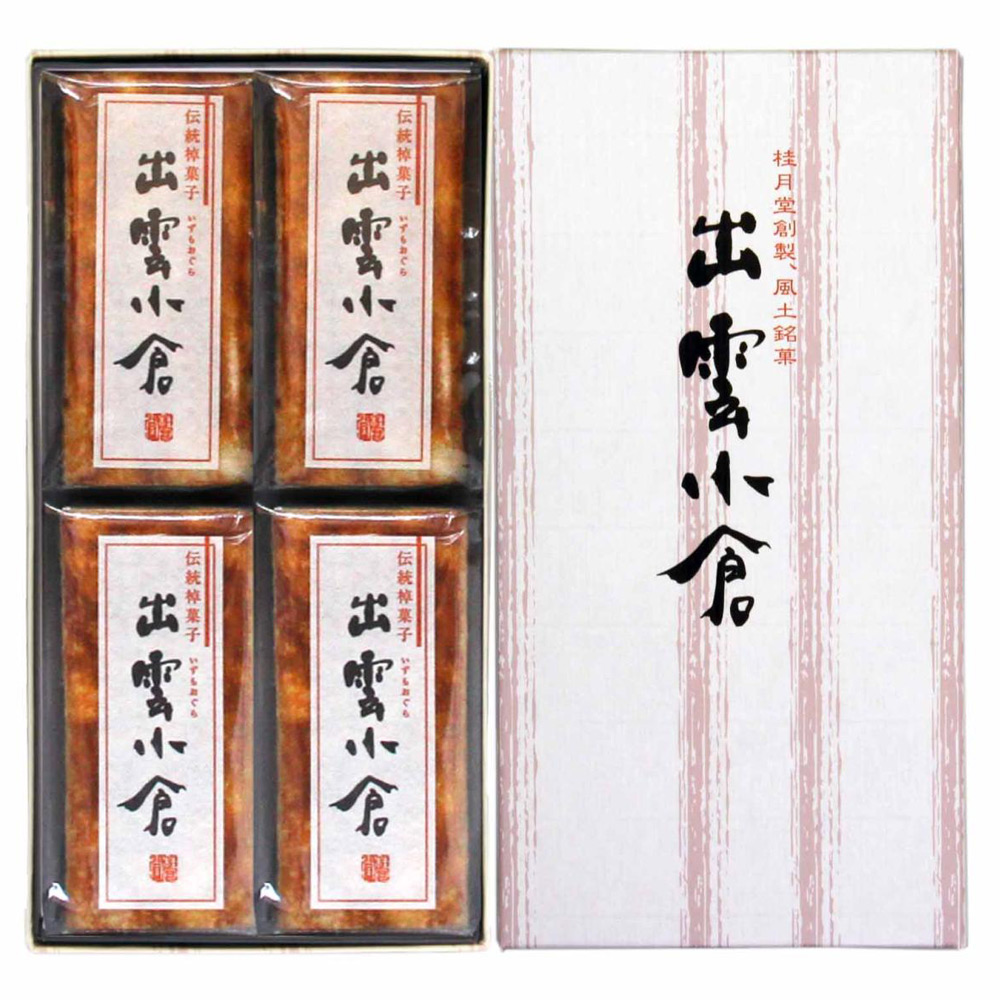 伝統棹菓子
出雲小倉
いずもおぐら
伝統棹菓子
出雲小倉
いずもおぐら
伝統棹菓子
出雲小倉
いずもおぐら
伝統棹菓子
出雲小倉
いずもおぐら
桂月堂創製、風土銘菓
出雲小倉